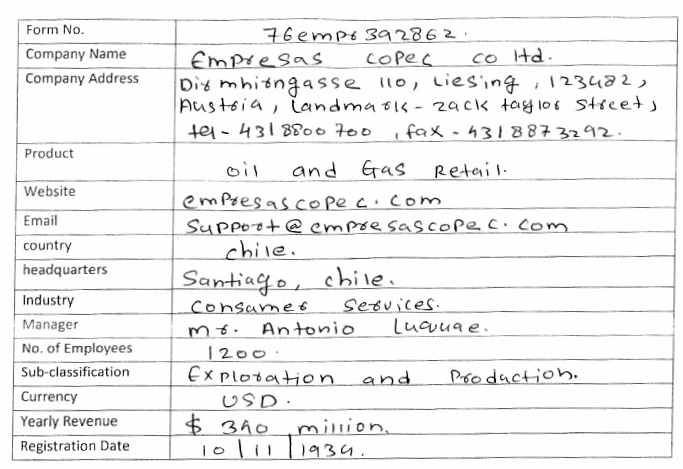 Form No. 76empr392862.
Company Name Empresas copec co ltd.
Company Address Dirmhirngasse 110, Liesing, 123482,
Austria, Landmark - zack taylor street,
tel - 4318800700, fax - 4318873292.
Product oil and Gas Retail.
Website empresascopec.com
Email support@empresascopec.com
country chile.
headquarters Santiago, chile.
Industry Consumer Services.
Manager mr. Antonio
No. of Employees 1200.
Sub-classification Exploration and Production.
Currency USD.
Yearly Revenue $ 390 million.
Registration Date 10/11/1934.